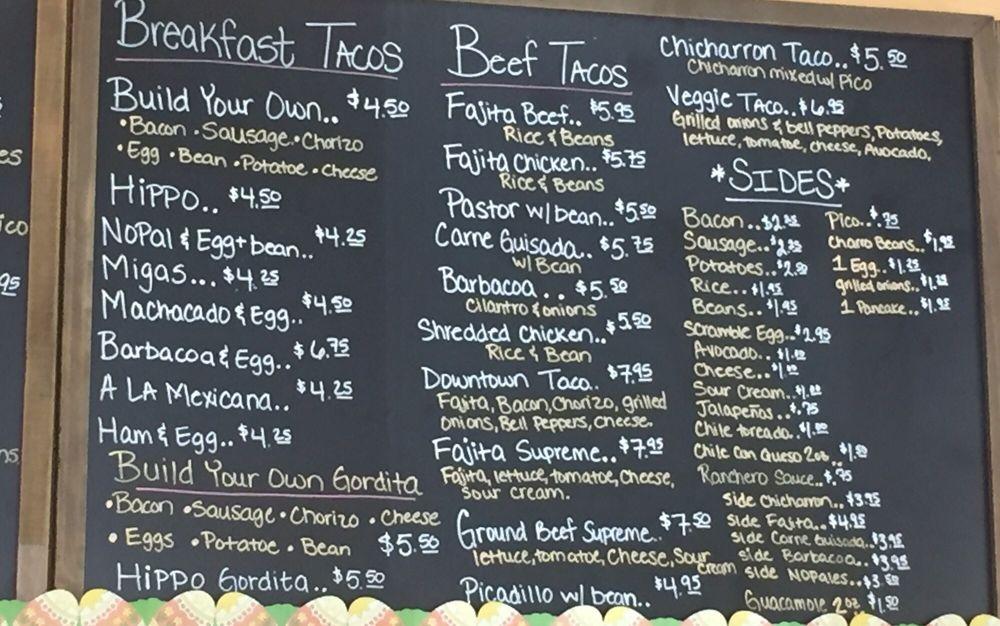 Breakfast TACOS
Build Your Own.. $4.50
•Bacon •Sausage •Chorizo
•Egg •Bean •Potatoe •Cheese
Hippo.. $4.50
Nopal & Egg+bean.. $4.25
Migas... $4.25
Machacado & Egg.. $4.50
Barbacoa & Egg.. $6.75
A LA Mexicana.. $4.25
Ham & Egg.. $4.25
Build Your Own Gordita
•Bacon •Sausage •Chorizo •Cheese
•Eggs •Potatoe •Bean $5.50
Hippo Gordita.. $5.50
Beef TACOS
Fajita Beef.. $5.95
Rice & Beans
Fajita Chicken.. $5.75
Rice & Beans
Pastor w/ bean.. $5.50
Carne Guisada.. $5.75
w/ Bean
Barbacoa.. $5.50
Cilantro & onions
Shredded Chicken.. $5.50
Rice & Bean
Downtown Taco.. $7.95
Fajita, Bacon, Chorizo, grilled
onions, Bell Peppers, cheese.
Fajita Supreme.. $7.95
Fajita, lettuce, tomatoe, cheese,
sour cream.
Ground Beef Supreme.. $7.50
lettuce, tomatoe, Cheese, Sour
cream
Picadillo w/ bean.. $4.95
Chicharron Taco.. $5.50
Chicharron mixed w/ Pico
Veggie Taco.. $6.95
Grilled onions & bell peppers, Potatoes,
lettuce, tomatoe, cheese, Avocado.
*SIDES*
Bacon..
Sausage..
Potatoes..
Rice.. $1.95
Beans.. $1.95
Scramble Egg.. $2.95
Avocado..
Cheese..
Sour Cream..
Jalapeños.. $.75
Chile toreado..
Chile Con Queso 2oz..
Ranchero Sauce.. $.75
Side Chicharron.. $3.95
Side Fajita.. $4.95
Side Carne Guisada.. $3.95
Side Barbacoa.. $3.95
Side Nopales.. $3.50
Guacamole 2oz $1.50
Pico.. $.75
Charro Beans.. $1.95
1 Egg..
grilled onions..
1 Pancake..
es
ico
95
ns